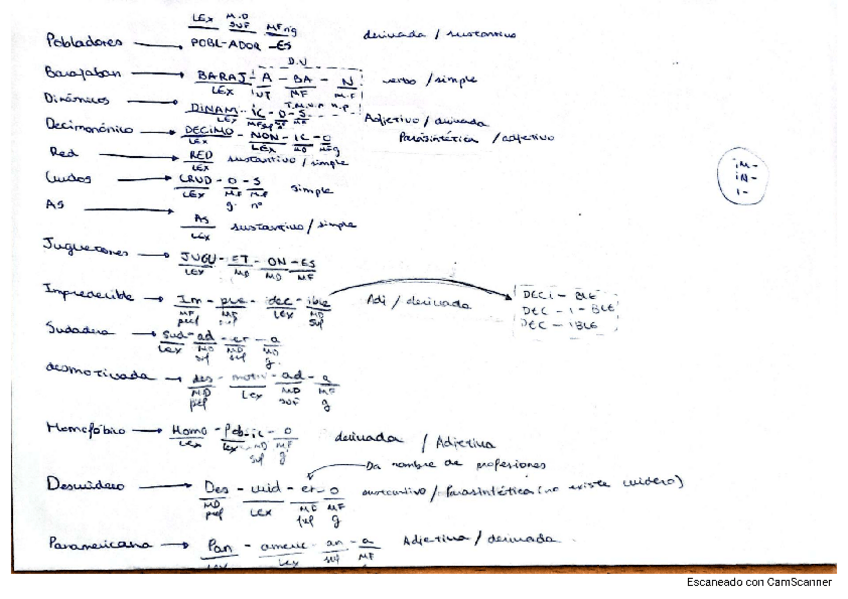 LEX M.D SUF MF ng
Pobladores → POBL-ADOR-ES derivada / sustantivo
D.V
Barajaban → BARAJ-A-BA-N verbo / simple
LEX VT MF M.F
T.M.V.A N.P.
Dinámicos → DINAM-IC-O-S Adjetivo / derivada
LEX
Decimonónico → DECIMO-NON-IC-O Parasintética / adjetivo
LEX LEX MD MF g
Red → RED sustantivo / simple
LEX
Crudos → CRUD-O-S simple
LEX MF MF
g. nº
As → AS sustantivo / simple
LEX
Juguetones → JUGU-ET-ON-ES
LEX MD MD MF
Impredecible → Im-pre-dec-ible Adj / derivada
LEX MD
suf
DECI-BLE
DEC-I-BLE
DEC-IBLE
iM-
iN-
i-
Sudadera → Sud-ad-er-a
LEX MD MD
suf suf g.
desmotivada → des-motiv-ad-a
MD LEX MD MF
pref suf g
Homofóbico → Homo-fob-ic-o derivada / Adjetiva
LEX LEX MD MF
suf g.
Da nombre de profesiones
Descuidero → Des-cuid-er-o sustantivo / Parasintética (no existe cuidero)
MD LEX MD MF
pref suf g
Panamericana → Pan-americ-an-a Adjetiva / derivada.
LEX LEX suf MF
Escaneado con CamScanner